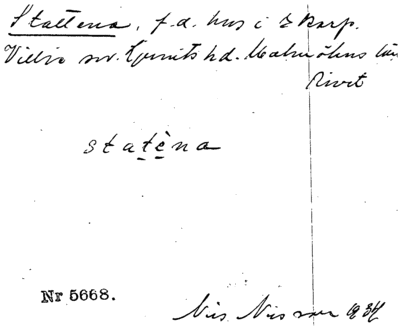 Stattena, f.d. hus i S Karp.
Villie sn. Ljunits hd. Malmöhus län
Rivet
statèna
Nr 5668.
Nils Nilsson 1934